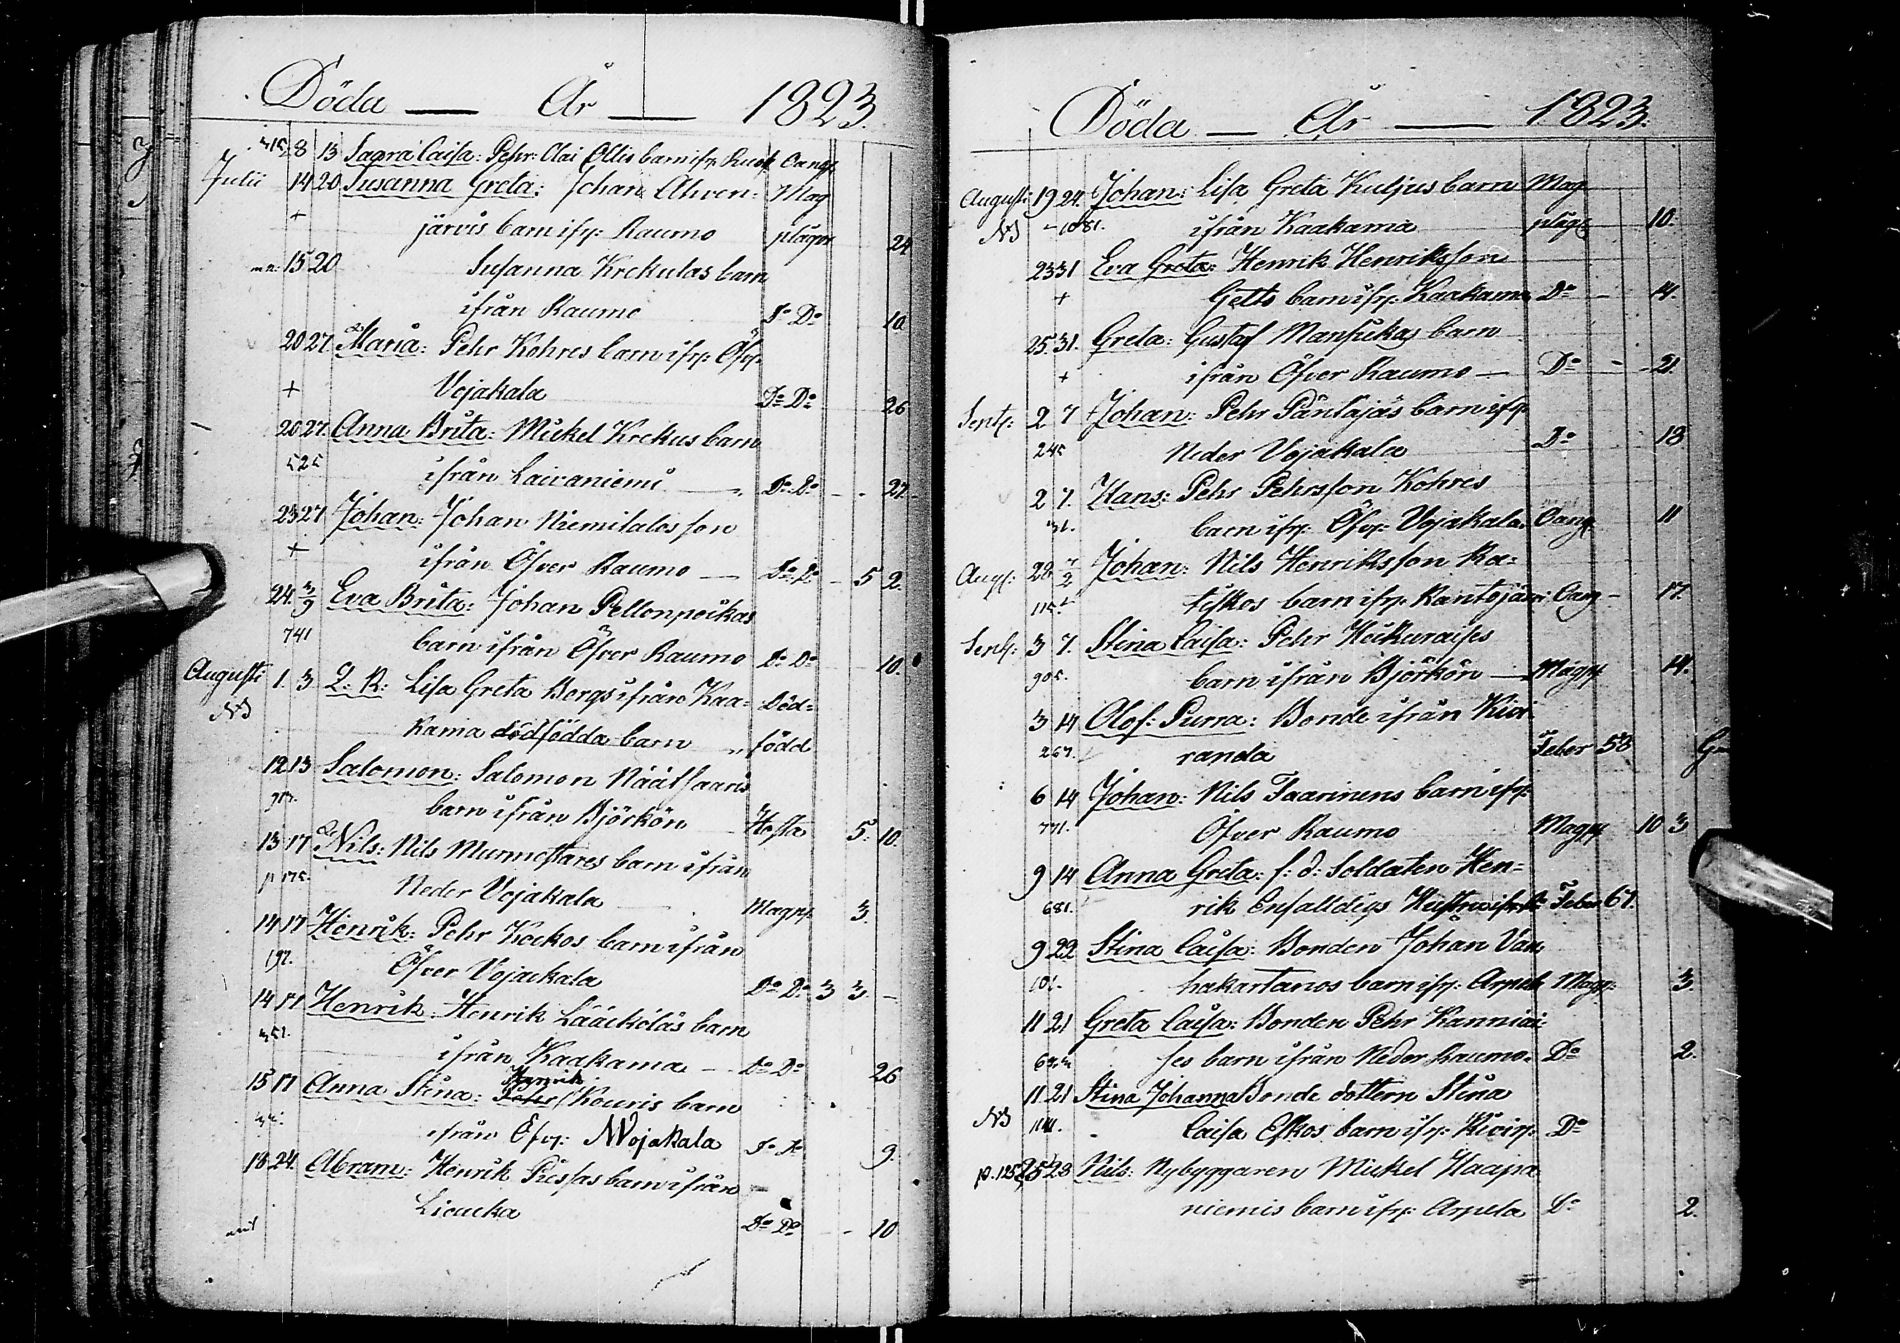 Döda — År — 1823.
8 13 Saara Caisa: Pehr Olai Ollis barn ifr:
Julii 14 20 Susanna Greta: Johan Ahven- Mag
+ järvis barn ifr: Raumo plågor 24
15 20 Susanna Krekulas barn
ifrån Raumo Do Do 10
20 27 Maria: Pehr Kohres barn ifr: Öfv:
+ Vojakala Do Do 26
20 27. Anna Brita: Mickel Krekus barn
525 ifrån Laivaniemi Do Do - - 27.
23 27 Johan: Johan Niemitalos son
+ ifrån Öfver Raumo — Do Do - 5 2.
24. 3/9 Eva Brita: Johan Pellonpoikas
741 barn ifrån Öfver Raumo Do Do 10.
Augusti 1. 3 Lisa Greta Borgs ifrån Kaa- Död-
NB kama dödfödda barn „ född
12 13 Salomon: Salomon Näätsaaris
barn ifrån Björkön Hosta 5. 10.
13 17 Nils: Nils Murmestares barn ifrån
p 175. Neder Vojakala — Magpl. 3.
14 17 Henrik: Pehr Kockos barn ifrån
197. Öfver Vojackala Do Do 3 3. -
14 17 Henrik: Henrik Lääcköläs barn
351. ifrån Kaakama — Do Do 26
Henrik
15 17 Anna Stina: Kouris barn
ifrån Öfv: Wojakala Do Do 9.
18 24. Abram: Henrik Piessas barn ifrån
Liacka Do Do - - 10
Döda — År — 1823.
Augusti 19 24. Johan: Lisa Greta Kuljus barn Mag
NB - 1081. ifrån Kaakama plågor 10.
23 31 Eva Greta: Henrik Henriksson
+ Getts barn ifr: Kaakama Do - 4.
25. 31. Greta: Gustaf Mansickas barn
+ ifrån Öfver Raumo — Do - - 21.
Sept: 2 7 Johan: Pehr Päntäjäs barn ifr:
245 Neder Vojakala Do 18
2 7. Hans: Pehr Pehrsson Kohres
31. barn ifr: Öfv: Vojakala. Oang 11
Aug: 28 7/2 Johan: Nils Henriksson Ra-
115 tiskos barn ifr: Kantojärvi Oang — 17.
Sept: 3 7. Stina Caisa: Pehr Heikuraises
905. barn ifrån Björkön — Magpl 14.
3 14 Olof: Purra: Bonde ifrån Kivi-
267. randa Feber 58
6 14 Johan: Nils Taarinens barn ifr:
771. Öfver Raumo Magpl 10 3
9 14 Anna Greta: f: d: Soldaten Hen-
681. rik Enfalldigs Hustru ifr: Do Feber 67.
9 22 Stina Caisa: Bonden Johan Van-
101. hakartanos barn ifr: Arpela Magpl: 3.
11 21 Greta Caisa: Bonden Pehr Kanniai-
633 ses barn ifrån Neder Raumo. Do 2.
11 21 Stina Johanna Bonde dottern Stina
NB Caisa Eskos barn ifr: Kivir: Do
p. 125 25 28 Nils: Nybyggaren Mickel Haapa-
niemis barn ifr: Arpela Do 2.